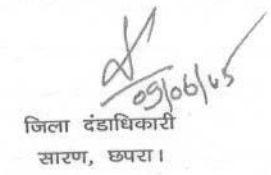 09/06/65
जिला दंडाधिकारी
सारण, छपरा।